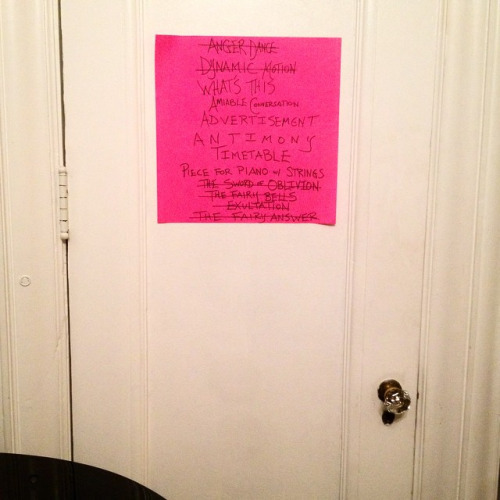 ANGER DANCE
DYNAMIC MOTION
WHAT'S THIS
AMIABLE CONVERSATION
ADVERTISEMENT
ANTIMONY
TIMETABLE
PIECE FOR PIANO W/ STRINGS
THE SWORD OF OBLIVION
THE FAIRY BELLS
EXULTATION
THE FAIRY ANSWER